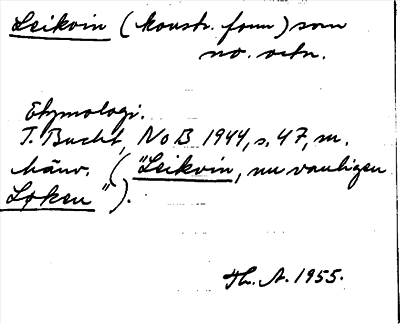 Leikvin (konstr. form) som
no. ortn.
Etymologi.
T. Bucht, NoB 1944, s. 47, m.
hänv. ("Leikvin, nu vanligen
Løken").
Th. A. 1955.